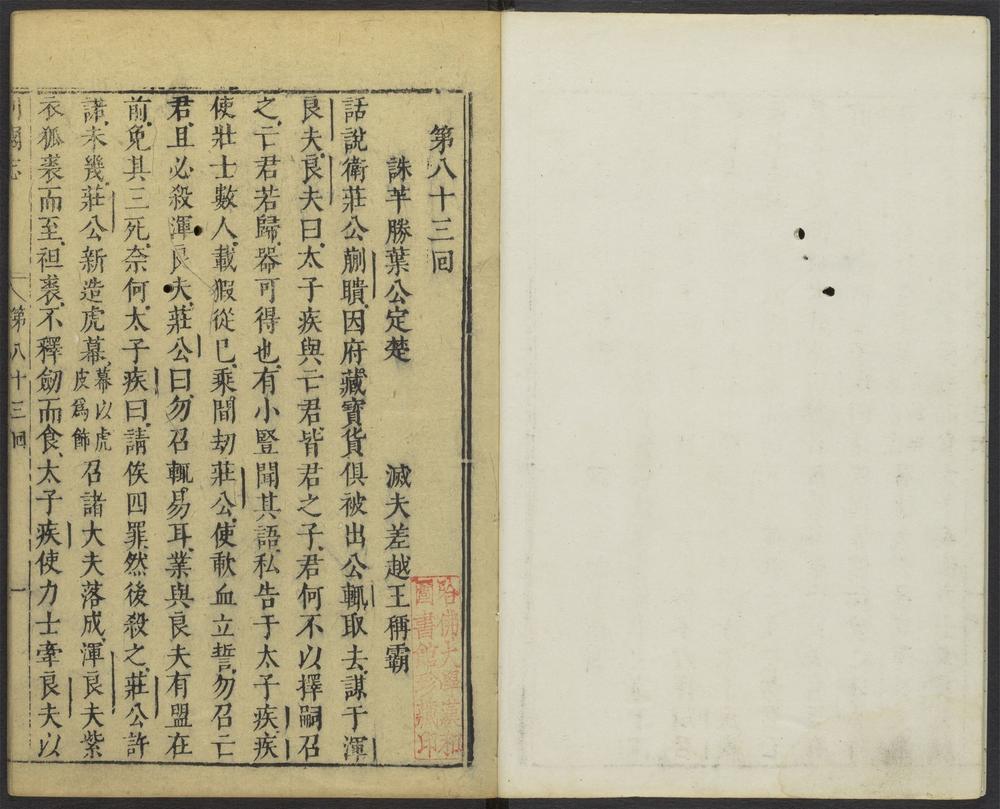 第八十三回
誅羋勝葉公定楚　滅夫差越王稱霸
話說衛莊公蒯聵因府藏寶貨俱被出公輒取去謀于渾
良夫良夫曰太子疾與亡君皆君之子君何不以擇嗣召
之亡君若歸器可得也有小豎聞其語私告于太子疾疾
使壯士數人載猳從己乘間劫莊公使歃血立誓勿召亡
君且必殺渾良夫莊公曰勿召輒易耳業與良夫有盟在
前免其三死奈何太子疾曰請俟四罪然後殺之莊公許
諾未幾莊公新造虎幕幕以虎皮為飾召諸大夫落成渾良夫紫
衣狐裘而至袒裘不釋劒而食太子疾使力士牽良夫以
列國志　第八十三回　一
哈佛大學漢和
圖書館珍藏印